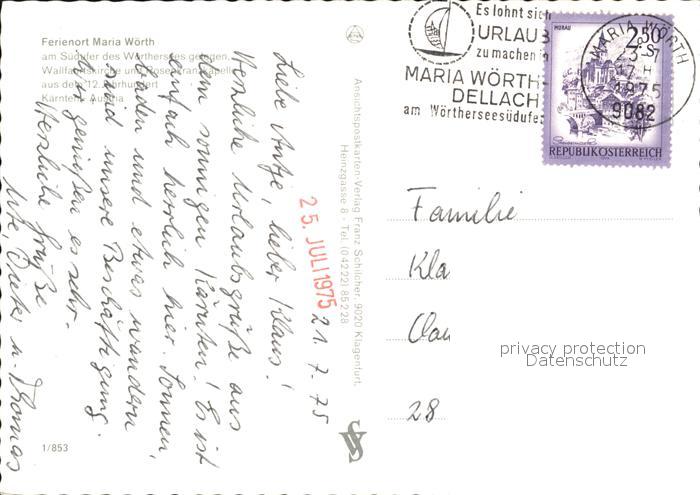 Ferienort Maria Wörth
am Südufer des Wörthersees gelegen,
Wallfahrtskirche und Rosenkranzkapelle
aus dem 12. Jahrhundert
Kärnten, Austria
Liebe Antje, lieber Klaus!
Herzliche Urlaubsgrüße aus
dem sonnigen Kärnten! Es ist
einfach herrlich hier. Sonnen,
baden und etwas wandern
sind unsere Beschäftigung.
Wir genießen es sehr.
Herzliche Grüße
Dieter u. Thomas
1/853
21. 7. 75
25. JULI 1975
Ansichtspostkarten-Verlag Franz Schilcher, 9020 Klagenfurt,
Heinzgasse 8 - Tel. (04222) 85 2 28
Es lohnt sich
URLAUB
zu machen in
MARIA WÖRTH
DELLACH
am Wörtherseesüdufer
MURAU
2.50
REPUBLIK ÖSTERREICH
MARIA WÖRTH
1975
9082
Familie
Kla
28
privacy protection
Datenschutz